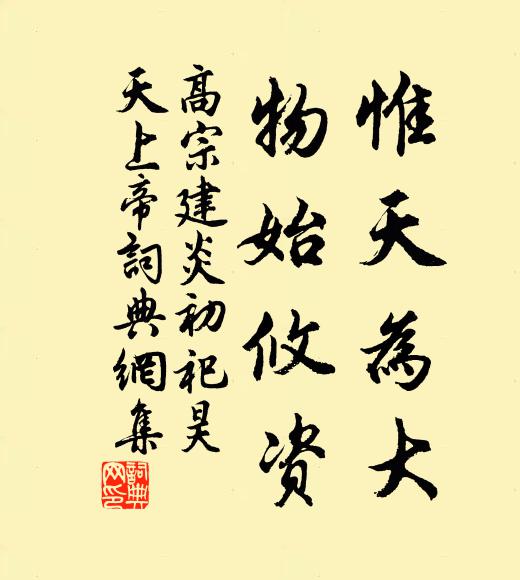 惟天為大
物始攸资
高宗建炎初祀昊
天上帝詞典網集
詞典
网印